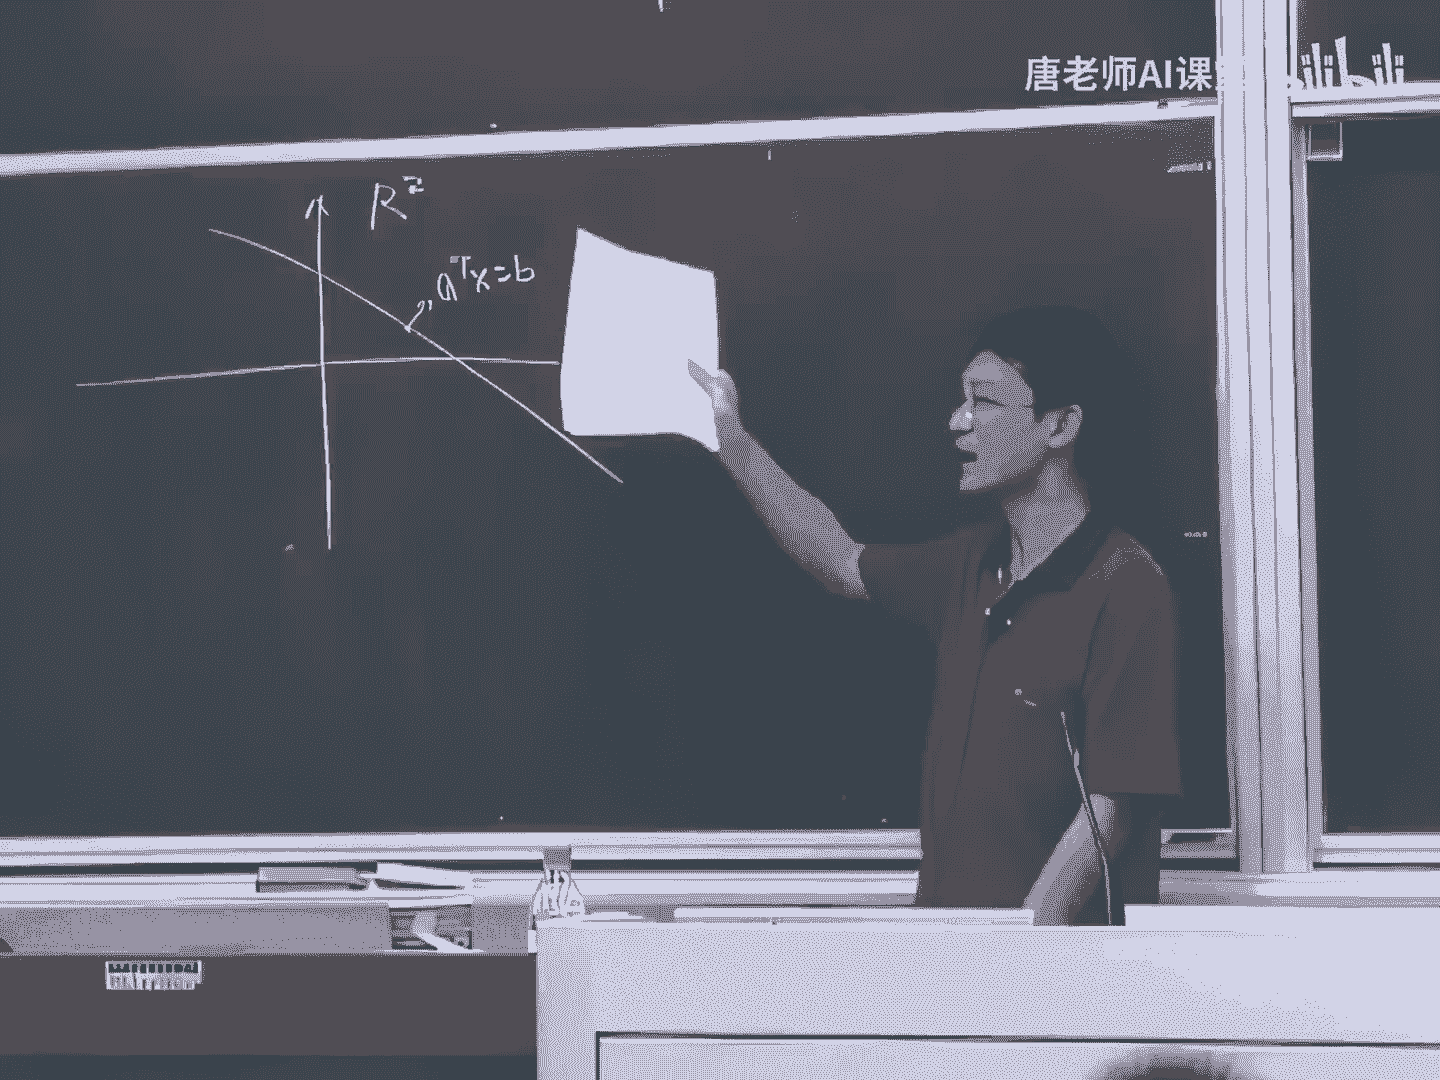 唐老师AI课
bilibili
R²
aᵀx=b